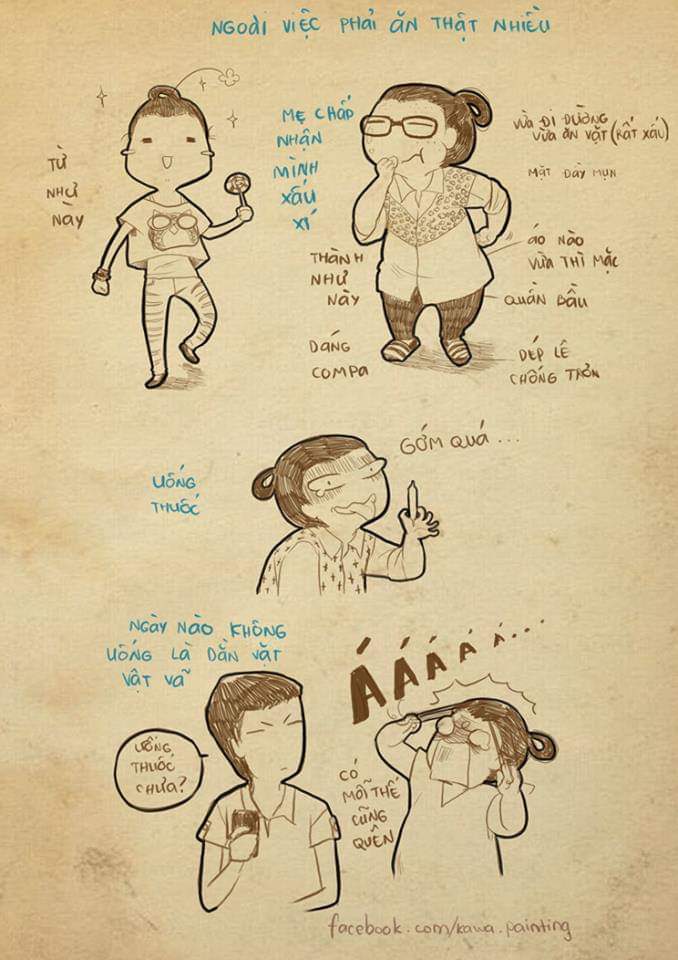 NGOÀI VIỆC PHẢI ĂN THẬT NHIỀU
TỪ
NHƯ
NÀY
MẸ CHẤP
NHẬN
MÌNH
XẤU
XÍ
THÀNH
NHƯ
NÀY
DÁNG
COMPA
VỪA ĐI ĐƯỜNG
VỪA ĂN VẶT (RẤT XẤU)
MẶT DÀY MỤN
ÁO NÀO
VỪA THÌ MẶC
QUẦN BẦU
DÉP LÊ
CHỐNG TRƠN
UỐNG
THUỐC
GỚM QUÁ...
NGÀY NÀO KHÔNG
UỐNG LÀ DẰN VẶT
VẬT VÃ
UỐNG
THUỐC
CHƯA?
Á Á Á Á Á...
CÓ
MỖI THẾ
CŨNG
QUÊN
facebook.com/kawa.painting